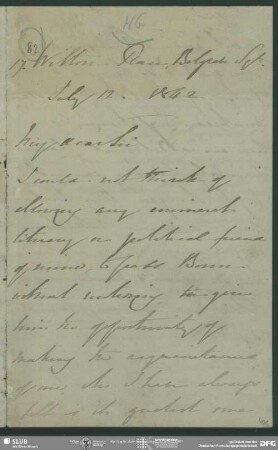 HG.
82
17 Wilton Place, Belgrave Sqr.
July 12. 1842
My dear Sir
I could not think of
allowing any eminent
literary or political friend
of mine, to pass Bonn
without endeavoring to give
him the opportunity of
making the acquaintance
of one who I have always
felt is the greatest
SLUB
DFG